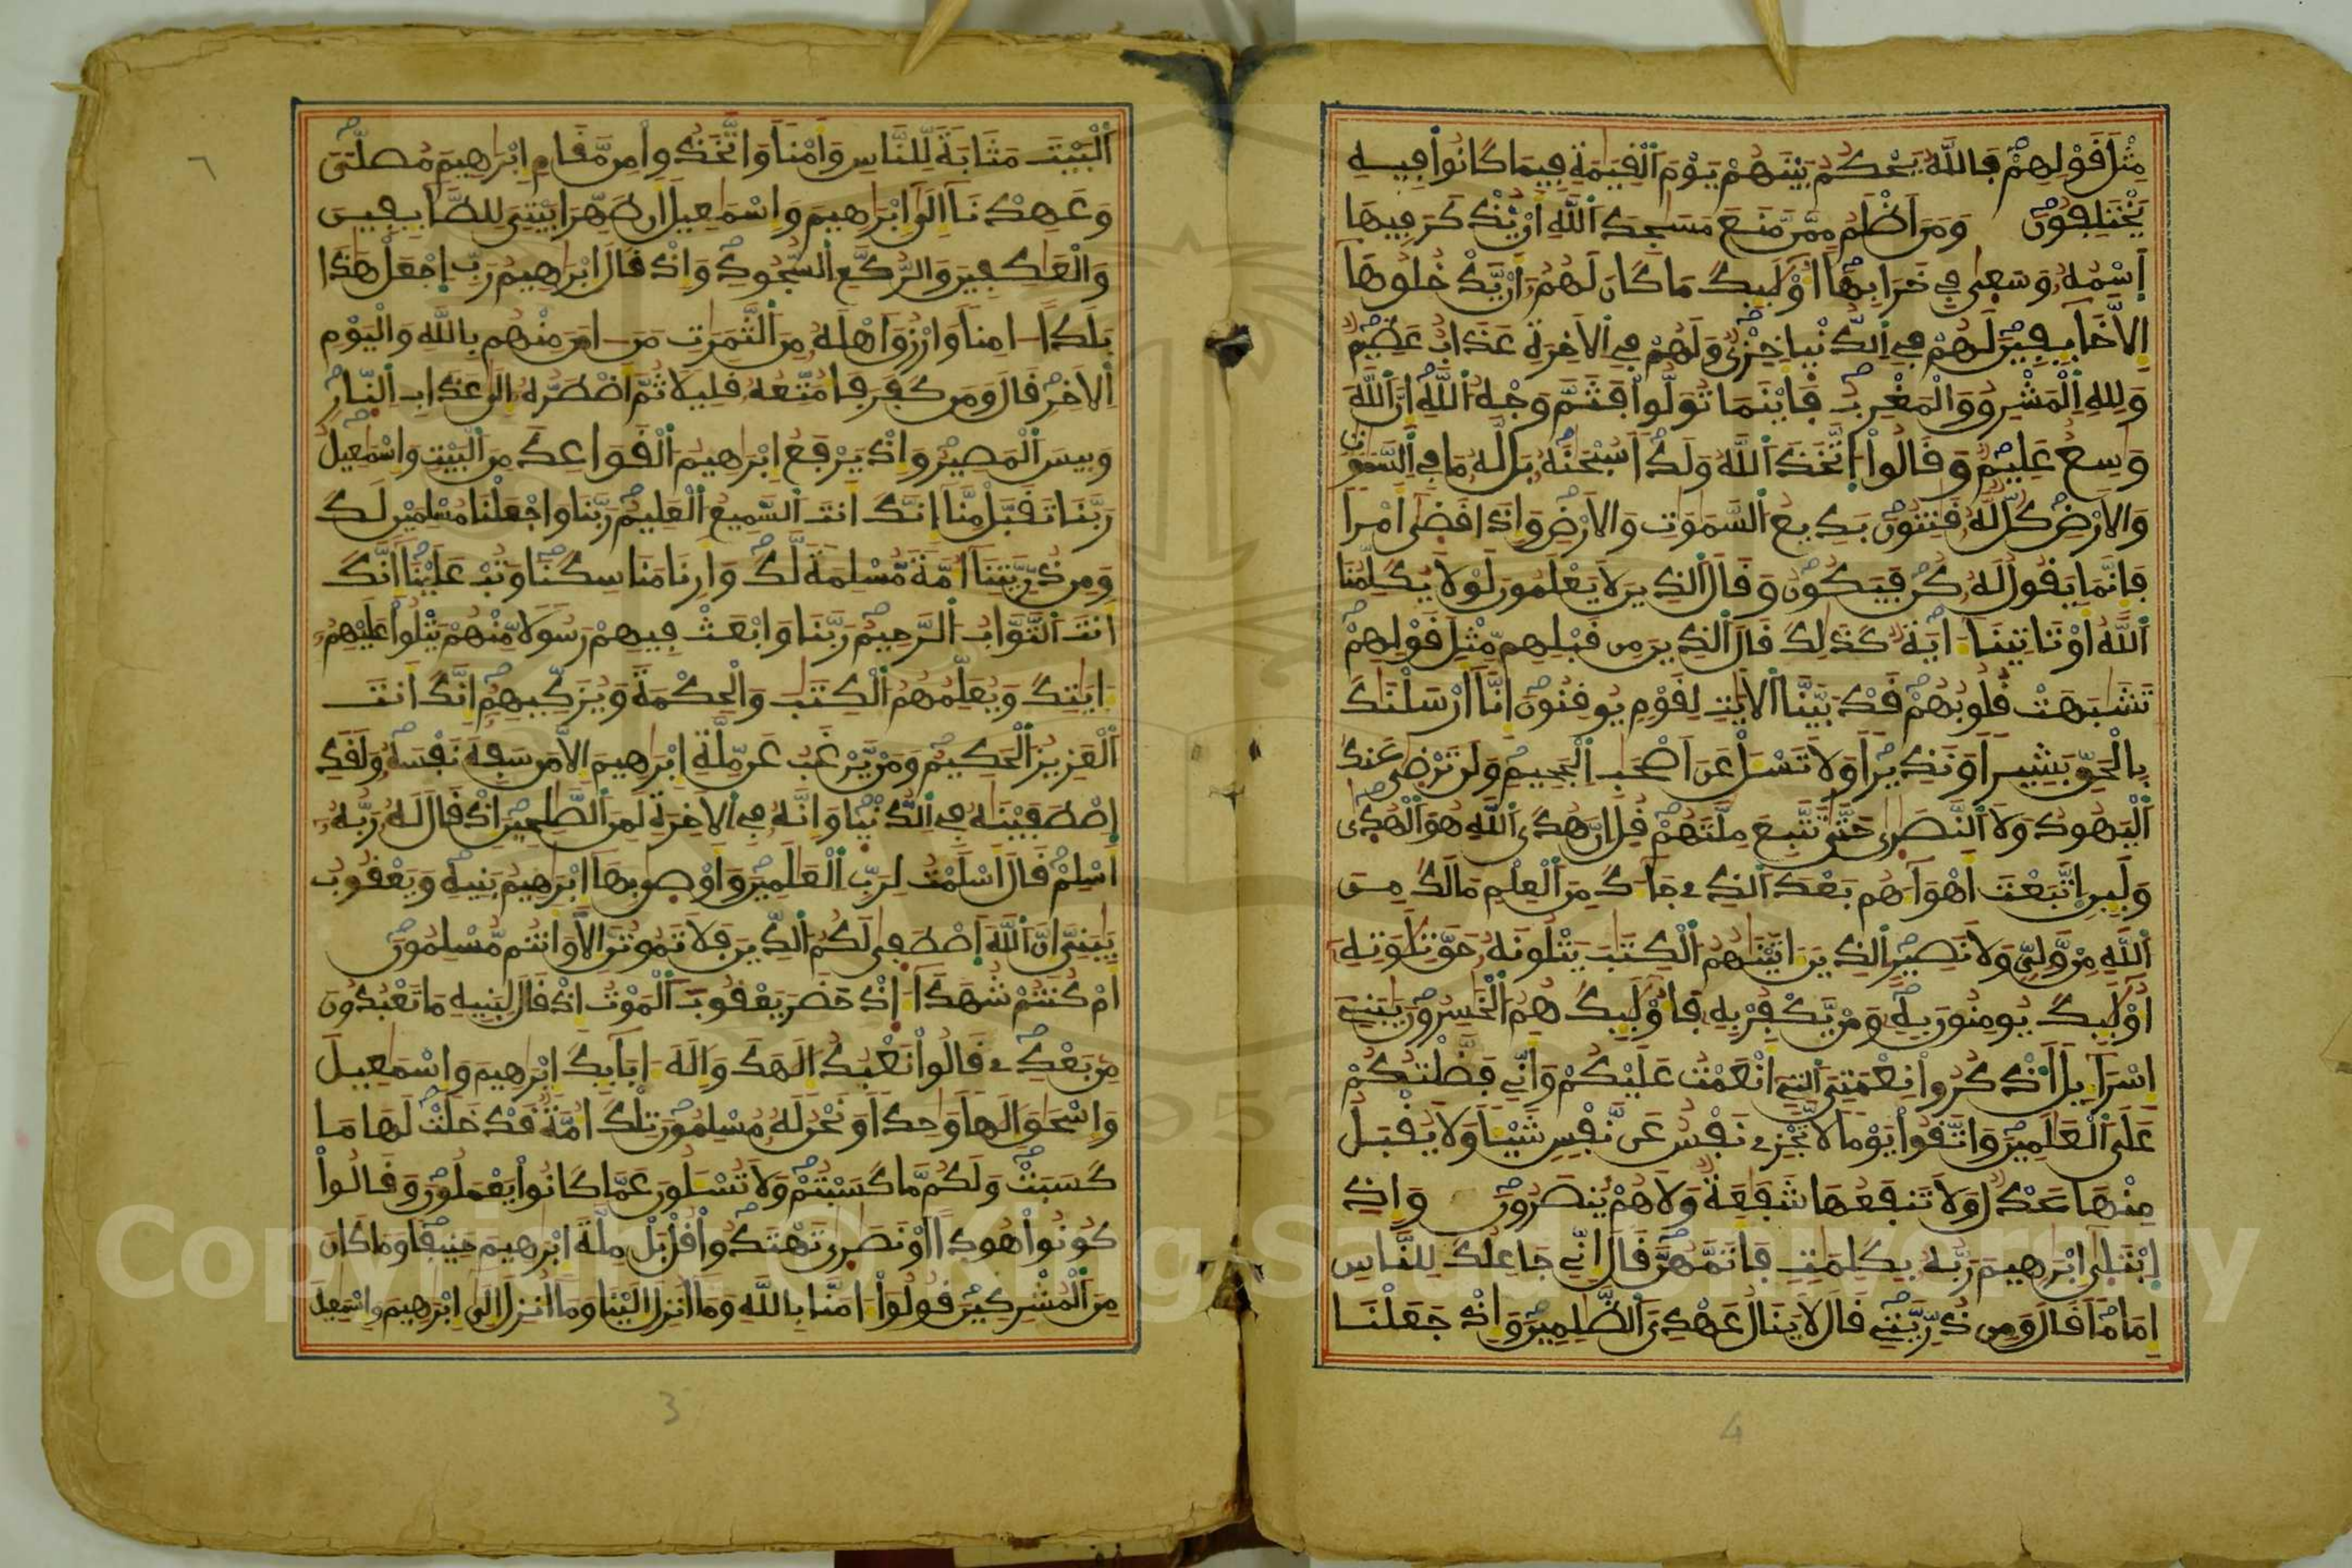 مِثْلَ قَوْلِهِمْ فَاللَّهُ يَحْكُمُ بَيْنَهُمْ يَوْمَ الْقِيَمَةِ فِيمَا كَانُوا فِيهِ
يَخْتَلِفُونَ وَمَنَ اَظْلَمُ مِمَّن مَّنَعَ مَسَجِدَ اللَّهِ أَنْ يُّذْكَرَ فِيهَا
اِسْمُهُ وَسَعى فِي خَرَابِهَا أُوْلَئِكَ مَا كَانَ لَهُمُ أَنْ يَّدْخُلُوهَا
إِلاَّ خَائِفِينَ لَهُمْ فِي الدُّنْيا خِزْيٌ وَلَهُمْ فِي الاَخِرَةِ عَذَابٌ عَظِيمٌ
وَلِلهِ الْمَشْرِقُ وَالْمَغْرِبُ فَأَيْنَمَا تُوَلُّوا فَثَمَّ وَجْهُ اللَّهِ إِنَّ اللَّهَ
وَسِعٌ عَلِيمٌ وَقَالُوا اتَّخَذَ اللَّهُ وَلَداً سُبْحَنَهُ بَل لَّهُ مَا فِي السَّمَوَتِ
وَالاَرْضِ كُلٌّ لَّهُ قَنِتُونَ بَدِيعُ السَّمَوَتِ وَالاَرْضِ وَإِذَا قَضى أَمْراً
فَإِنَّمَا يَقُولُ لَهُ كُن فَيَكُونُ وَقَالَ الذِينَ لاَ يَعْلَمُونَ لَوْلاَ يُكَلِّمُنَا
اللَّهُ أَوْ تَاتِينَا ءَايَةٌ كَذَلِكَ قَالَ الذِينَ مِن قَبْلِهِم مِّثْلَ قَوْلِهِمْ
تَشَبَهَتْ قُلُوبُهُمْ قَدْ بَيَّنَّا الاَيَتِ لِقَوْمٍ يُوقِنُونَ إِنَّا أَرْسَلْنَكَ
بِالْحَقِّ بَشِيراً وَنَذِيراً وَلاَ تَسْـَٔلْ عَنَ اَصْحَبِ الْجَحِيمِ وَلَن تَرْضى عَنكَ
الْيَهُودُ وَلاَ النَّصَرى حَتَّى تَتَّبِعَ مِلَّتَهُمْ قُلِ إِنَّ هُدَى اللَّهِ هُوَ الْهُدَى
وَلَئِنِ اتَّبَعْتَ أَهْوَاءَهُم بَعْدَ الذِي جَاءَكَ مِنَ الْعِلْمِ مَالَكَ مِنَ
اللَّهِ مِنْ وَّلِيٍّ وَلاَ نَصِيرٍ الذِينَ ءَاتَيْنَهُمُ الْكِتَبَ يَتْلُونَهُ حَقَّ تِلاَوَتِهِ
أُوْلَئِكَ يُومِنُونَ بِهِ وَمَنْ يَّكْفُرْ بِهِ فَأُوْلَئِكَ هُمُ الْخَسِرُونَ يَبَنِي
إِسْرَاءِيلَ اَذْكُرُوا نِعْمَتِيَ التِي أَنْعَمْتُ عَلَيْكُمْ وَأَنِّي فَضَّلْتُكُمْ
عَلَى الْعَلَمِينَ وَاتَّقُوا يَوْماً لاَّ تَجْزِي نَفْسٌ عَن نَّفْسٍ شَيْـٔاً وَلاَ يُقْبَلُ
مِنْهَا عَدْلٌ وَلاَ تَنفَعُهَا شَفَعَةٌ وَلاَ هُمْ يُنصَرُونَ وَإِذِ
اِبْتَلَى إِبْرَهِيمَ رَبُّهُ بِكَلِمَتٍ فَأَتَمَّهُنَّ قَالَ إِنِّي جَاعِلُكَ لِلنَّاسِ
إِمَاماً قَالَ وَمِن ذُرِّيَّتِي قَالَ لاَ يَنَالُ عَهْدِيَ الظَّلِمِينَ وَإِذْ جَعَلْنَا
4
الْبَيْتَ مَثَابَةً لِّلنَّاسِ وَأَمْناً وَاتَّخَذُوا مِن مَّقَامِ إِبْرَهِيمَ مُصَلّىً
وَعَهِدْنَا إِلَى إِبْرَهِيمَ وَإِسْمَعِيلَ أَن طَهِّرَا بَيْتِيَ لِلطَّائِفِينَ
وَالْعَكِفِينَ وَالرُّكَّعِ السُّجُودِ وَإِذْ قَالَ إِبْرَهِيمُ رَبِّ اِجْعَلْ هَذَا
بَلَداً ءَامِناً وَارْزُقَ اَهْلَهُ مِنَ الثَّمَرَتِ مَنَ ءَامَنَ مِنْهُم بِاللَّهِ وَالْيَوْمِ
الاَخِرِ قَالَ وَمَن كَفَرَ فَأُمَتِّعُهُ قَلِيلاً ثُمَّ أَضْطَرُّهُ إِلَى عَذَابِ النَّارِ
وَبِيسَ الْمَصِيرُ وَإِذْ يَرْفَعُ إِبْرَهِيمُ الْقَوَاعِدَ مِنَ الْبَيْتِ وَإِسْمَعِيلُ
رَبَّنَا تَقَبَّلْ مِنَّا إِنَّكَ أَنتَ السَّمِيعُ الْعَلِيمُ رَبَّنَا وَاجْعَلْنَا مُسْلِمَيْنِ لَكَ
وَمِن ذُرِّيَّتِنَا أُمَّةً مُّسْلِمَةً لَّكَ وَأَرِنَا مَنَاسِكَنَا وَتُبْ عَلَيْنَا إِنَّكَ
أَنتَ التَّوَّابُ الرَّحِيمُ رَبَّنَا وَابْعَثْ فِيهِمْ رَسُولاً مِّنْهُمْ يَتْلُوا عَلَيْهِمُ
ءَايَتِكَ وَيُعَلِّمُهُمُ الْكِتَبَ وَالْحِكْمَةَ وَيُزَكِّيهِمُ إِنَّكَ أَنتَ
الْعَزِيزُ الْحَكِيمُ وَمَنْ يَّرْغَبُ عَن مِّلَّةِ إِبْرَهِيمَ إِلاَّ مَن سَفِهَ نَفْسَهُ وَلَقَدِ
اِصْطَفَيْنَهُ فِي الدُّنْيَا وَإِنَّهُ فِي الاَخِرَةِ لَمِنَ الصَّلِحِينَ إِذْ قَالَ لَهُ رَبُّهُ
أَسْلِمْ قَالَ أَسْلَمْتُ لِرَبِّ الْعَلَمِينَ وَأَوْصى بِهَا إِبْرَهِيمُ بَنِيهِ وَيَعْقُوبُ
يَبَنِيَّ إِنَّ اللَّهَ اَصْطَفى لَكُمُ الدِّينَ فَلاَ تَمُوتُنَّ إِلاَّ وَأَنتُم مُّسْلِمُونَ
أَمْ كُنتُمْ شُهَدَاءَ إِذْ حَضَرَ يَعْقُوبَ الْمَوْتُ إِذْ قَالَ لِبَنِيهِ مَا تَعْبُدُونَ
مِن بَعْدِي قَالُوا نَعْبُدُ إِلَهَكَ وَإِلَهَ ءَابَائِكَ إِبْرَهِيمَ وَإِسْمَعِيلَ
وَإِسْحَقَ إِلَهاً وَحِداً وَنَحْنُ لَهُ مُسْلِمُونَ تِلْكَ أُمَّةٌ قَدْ خَلَتْ لَهَا مَا
كَسَبَتْ وَلَكُم مَّا كَسَبْتُمْ وَلاَ تُسْـَٔلُونَ عَمَّا كَانُوا يَعْمَلُونَ وَقَالُوا
كُونُوا هُوداً اَوْ نَصَرى تَهْتَدُوا قُلْ بَلْ مِلَّةَ إِبْرَهِيمَ حَنِيفاً وَمَا كَانَ
مِنَ الْمُشْرِكِينَ قُولُوا ءَامَنَّا بِاللَّهِ وَمَا أُنزِلَ إِلَيْنَا وَمَا أُنزِلَ إِلَى إِبْرَهِيمَ وَإِسْمَعِيلَ
3
٦
Copyright © King Saud University